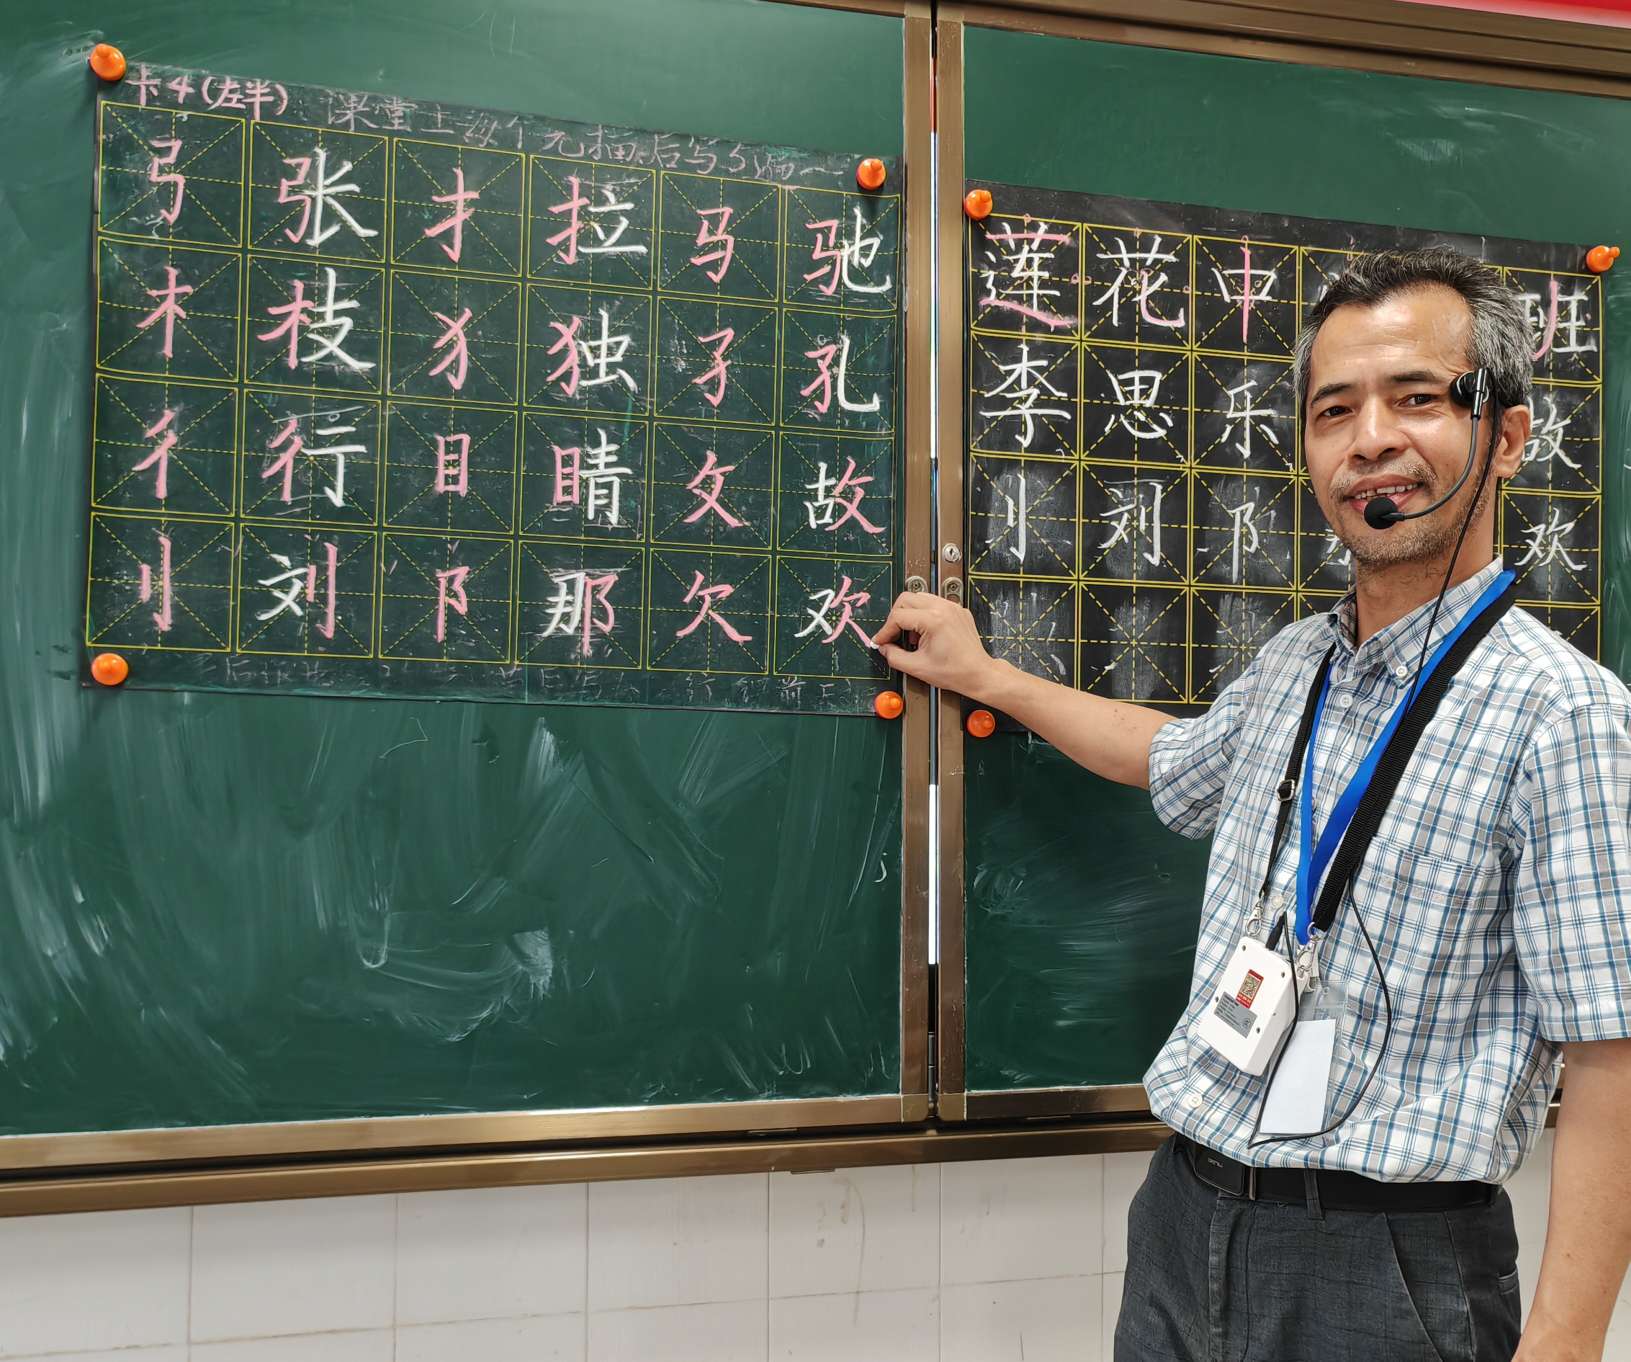 卡4(左半) 课堂上每个先描后写5遍
弓 张 扌 拉 马 驰
木 枝 犭 独 孑 孔
彳 行 目 睛 攵 故
刂 刘 阝 那 欠 欢
莲 花 中 班
李 思 乐 故
刂 刘 阝 欢